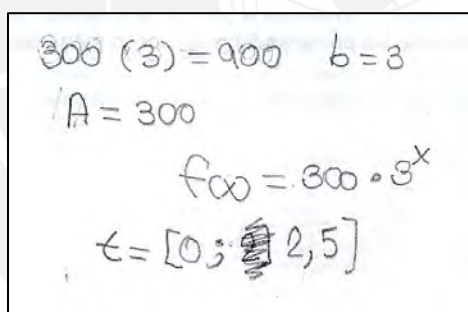 300 (3) = 900 b = 3
A = 300
f(x) = 300 • 3^x
t = [0; 2,5]